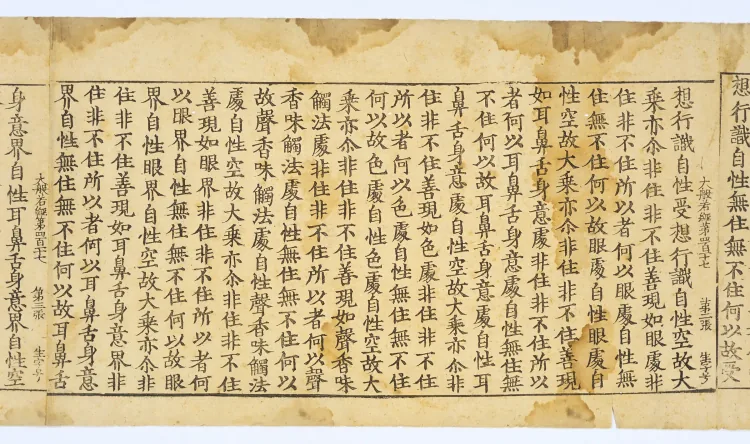 想行識自性無住無不住何以故受
大般若經第四百十七 第二張 生字号
想行識自性受想行識自性空故大
乘亦尒非住非不住善現如眼處非
住非不住所以者何以眼處自性無
住無不住何以故眼處自性眼處自
性空故大乘亦尒非住非不住善現
如耳鼻舌身意處非住非不住所以
者何以耳鼻舌身意處自性無住無
不住何以故耳鼻舌身意處自性耳
鼻舌身意處自性空故大乘亦尒非
住非不住善現如色處非住非不住
所以者何以色處自性無住無不住
何以故色處自性色處自性空故大
乘亦尒非住非不住善現如聲香味
觸法處非住非不住所以者何以聲
香味觸法處自性無住無不住何以
故聲香味觸法處自性聲香味觸法
處自性空故大乘亦尒非住非不住
善現如眼界非住非不住所以者何
以眼界自性無住無不住何以故眼
界自性眼界自性空故大乘亦尒非
住非不住善現如耳鼻舌身意界非
住非不住所以者何以耳鼻舌身意
界自性無住無不住何以故耳鼻舌
大般若經第四百十七 第三張 生字号
身意界自性耳鼻舌身意界自性空